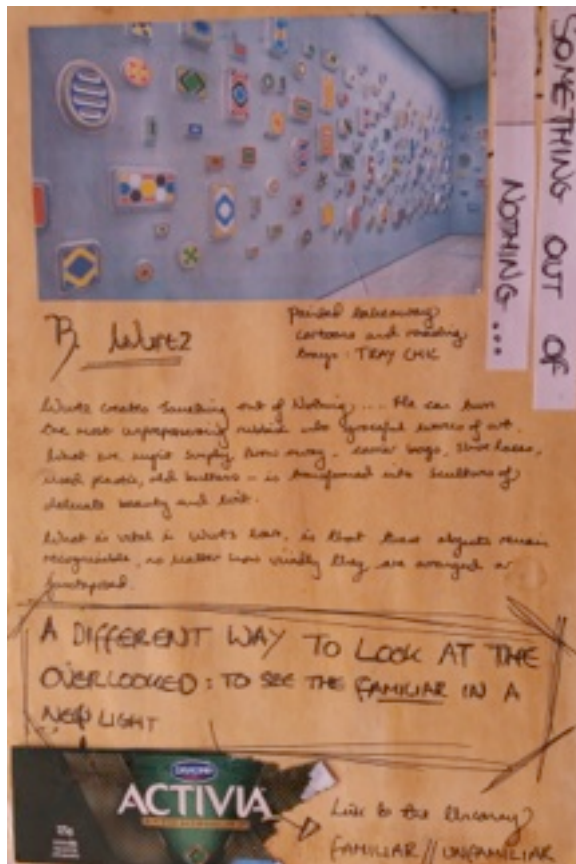 SOMETHING OUT OF
NOTHING...
B. Wurtz
painted takeaway
cartoons and roasting
trays: TRAY CHIC
Wurtz creates Something out of Nothing.... He can turn
the most unprepossessing rubbish into graceful works of art.
What we might simply throw away - carrier bags, shoe laces,
used plastic, old buttons - is transformed into sculptures of
delicate beauty and wit.
What is vital is Wurtz's love, is that these objects remain
recognisable, no matter how vividly they are arranged or
juxtaposed.
A DIFFERENT WAY TO LOOK AT THE
OVERLOOKED: TO SEE THE FAMILIAR IN A
NEW LIGHT
DANONE
ACTIVIA
Link to the Uncanny
FAMILIAR // UNFAMILIAR